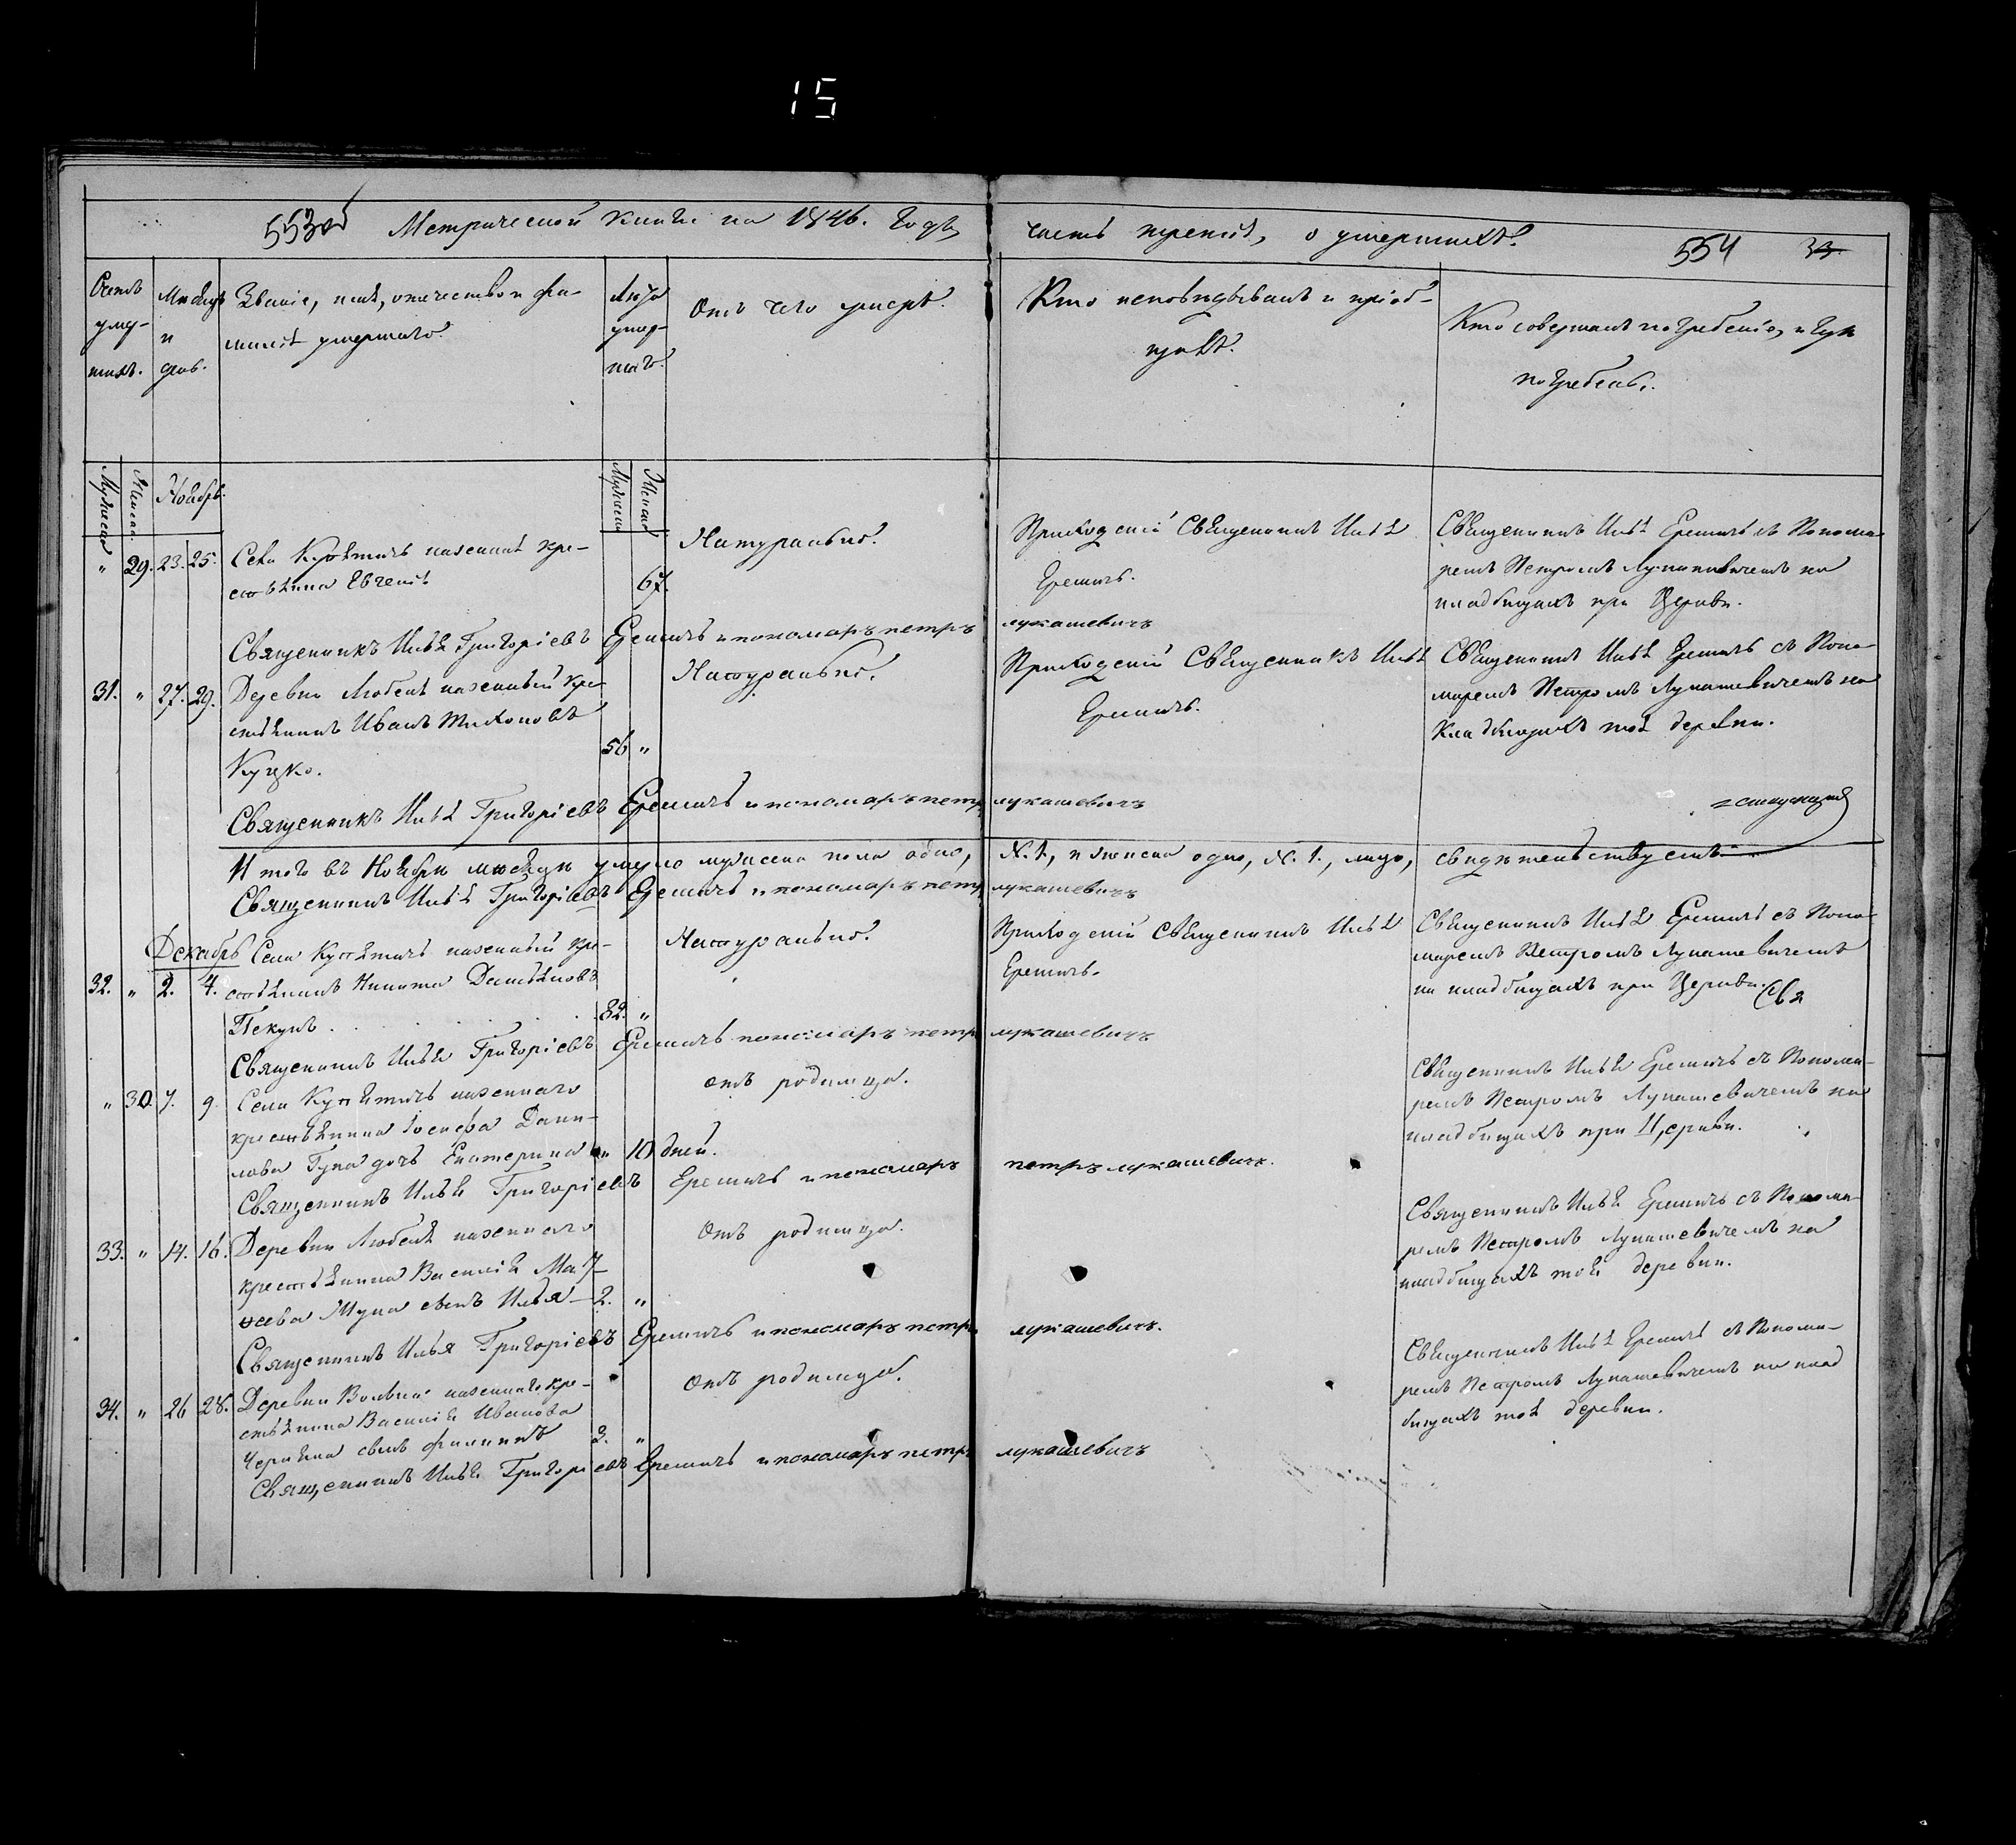 15
553об Метрической книги на 1846. годъ, часть третія, о умершихъ. 554
Счетъ умер-шихъ.
Мѣсяцъ и день.
Званіе, имя, отчество и фа-
милія умершаго.
Лѣта умер-шаго.
Отъ чего умеръ.
Кто исповѣдывалъ и пріоб-
щалъ.
Кто совершалъ погребеніе, и гдѣ
погребены.
Мужеска Женска Ноябрь. Мужеска Женска
" 29. 23. 25.
Села казенная кре-
стьянка Евгенія
67.
Натурально.
Приходскій Священникъ Илья
Еремичъ.
Священникъ Илья Еремичъ съ Понома-
ремъ Петромъ Лукашевичемъ на
кладбищахъ при Церкви.
Священникъ Илья Григоріевъ Еремичъ и пономаръ петръ лукашевичъ
31. " 27. 29.
Деревни Любеля казенный кре-
стьянинъ Иванъ Тихоновъ
Куцко.
56 "
Натурально.
Приходскій Священникъ Илья
Еремичъ.
Священникъ Илья Еремичъ съ Поно-
маремъ Петромъ Лукашевичемъ на
Кладбищахъ той деревни.
Священникъ Илья Григоріевъ Еремичъ и пономаръ петръ лукашевичъ
Итого въ Ноябрѣ мѣсяцѣ умерло мужеска пола одно, N. 1, и женска одно, N. 1., лицо, свидѣтельствуемъ
Священникъ Илья Григоріевъ Еремичъ и пономаръ петръ лукашевичъ
Декабрь
32. " 2. 4.
Села казенный кре-
стьянинъ Никита Демьяновъ
Пекунъ
32. "
Натурально.
Приходскій Священникъ Илья
Еремичъ.
Священникъ Илья Еремичъ съ Поно-
маремъ Петромъ Лукашевичемъ
на кладбищахъ при Церкви. Свя
Священникъ Илья Григоріевъ Еремичъ пономаръ петръ лукашевичъ
" 30. 7. 9.
Села казеннаго
крестьянина Іосифа Дани-
лова дочь Екатерина " 10 дней.
отъ родимца.
Священникъ Илья Еремичъ съ Понома-
ремъ Петромъ Лукашевичемъ на
кладбищахъ при Церкви.
Священникъ Илья Григоріевъ Еремичъ и пономаръ петръ лукашевичъ.
33. " 14. 16.
Деревни Любеля казеннаго
крестьянина Василія Мат-
ѳеева сынъ Илья 2. "
Отъ родимца.
Священникъ Илья Еремичъ съ Понома-
ремъ Петромъ Лукашевичемъ на
кладбищахъ той деревни.
Священникъ Илья Григоріевъ Еремичъ и пономаръ петръ лукашевичъ.
34. " 26 28.
Деревни казеннаго кре-
стьянина Василія Иванова
сынъ Филиппъ 3. "
Отъ родимца.
Священникъ Илья Еремичъ съ Понома-
ремъ Петромъ Лукашевичемъ на клад
бищахъ той деревни.
Священникъ Илья Григоріевъ Еремичъ и пономаръ петръ лукашевичъ